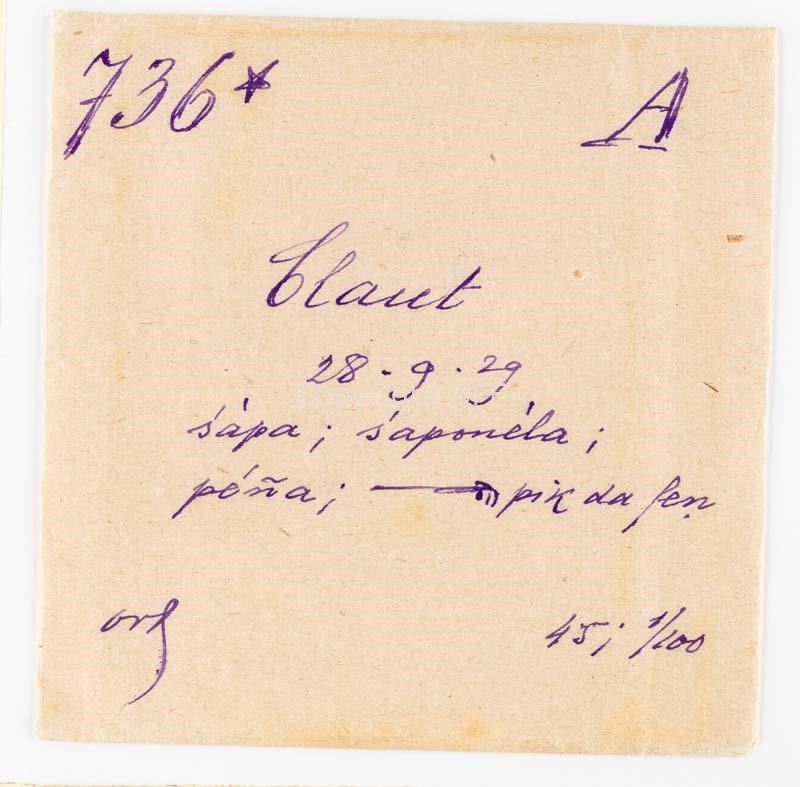 736* A
Claut
28-9.29
śápa; śaponéla;
péña; pik da feṇ
45; 1/100